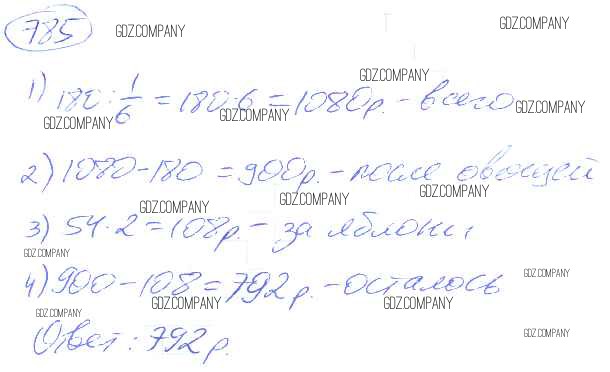 785
GDZ.COMPANY
GDZ.COMPANY
GDZ.COMPANY
1) 180 : 1/6 = 180·6 = 1080р. - всего
GDZ.COMPANY
GDZ.COMPANY
GDZ.COMPANY
2) 1080 - 180 = 900р. - после овощей
GDZ.COMPANY
GDZ.COMPANY
GDZ.COMPANY
3) 54·2 = 108р. - за яблоки
GDZ.COMPANY
GDZ.COMPANY
4) 900 - 108 = 792 р. - осталось
GDZ.COMPANY
GDZ.COMPANY
GDZ.COMPANY
Ответ: 792 р.
GDZ.COMPANY